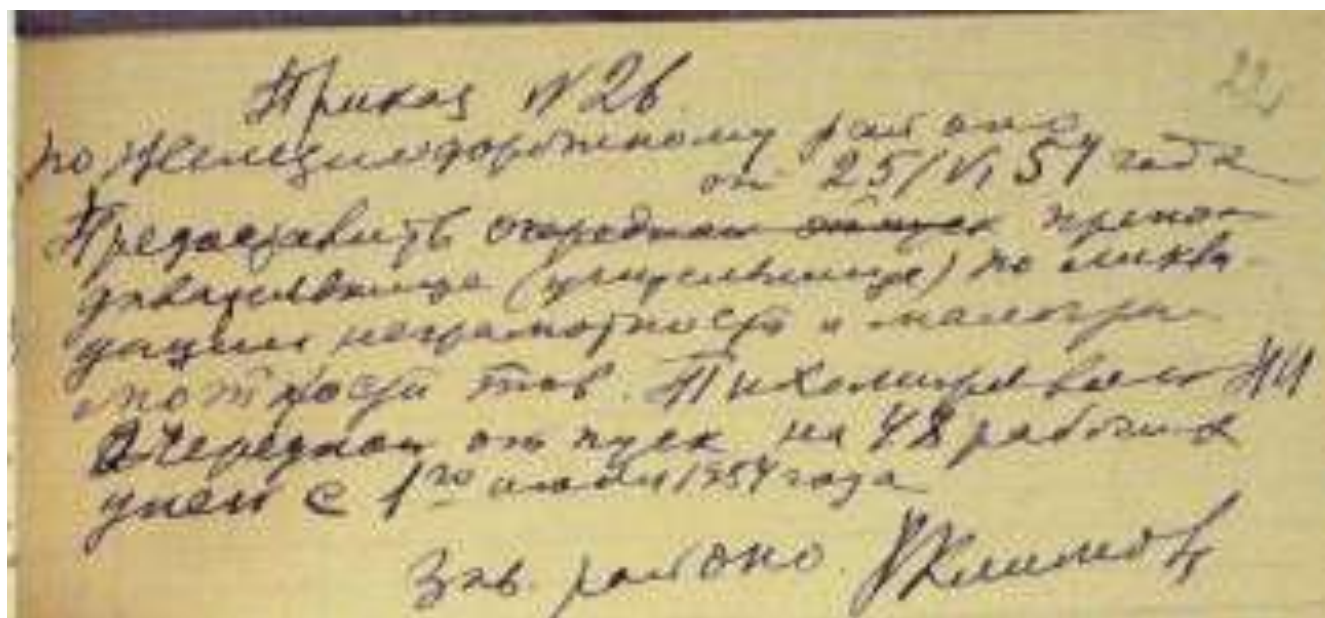 22
Приказ N 26
по Железнодорожному районо
от 25/VI 54 года
Предоставить очередной отпуск препо-
давательнице (учительнице) по ликви-
дации неграмотности и малогра-
мотности тов.
очередной отпуск на 48 рабочих
дней с 1го июля 1954 года
Зав. районо Климов